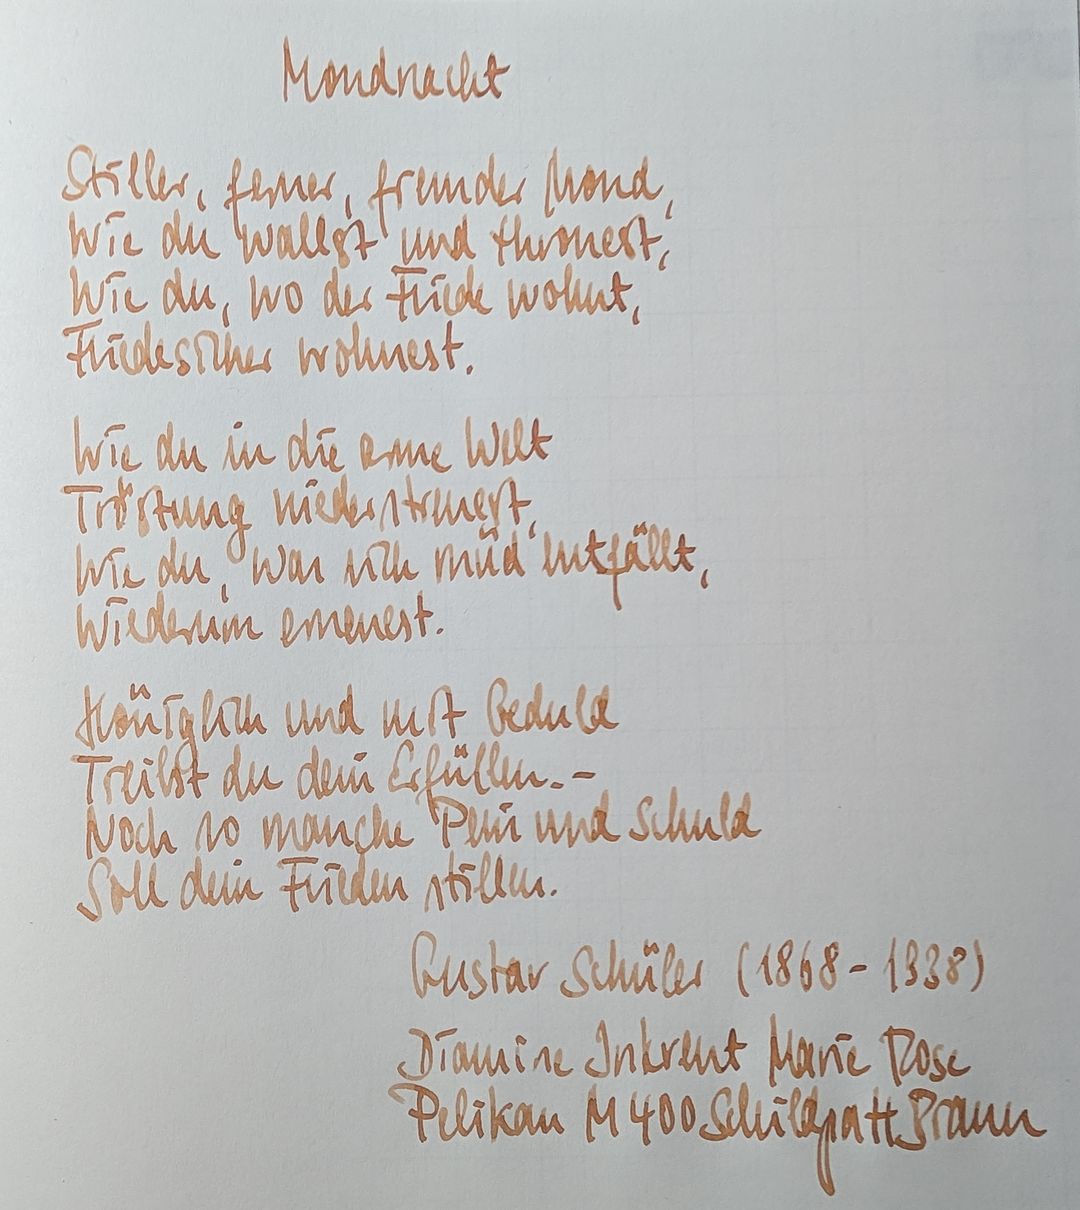 Mondnacht
Stiller, ferner, fremder Mond,
Wie du wallst und thronest,
Wie du, wo der Friede wohnt,
Friedesicher wohnest.
Wie du in die arme Welt
Tröstung niederstreuest,
Wie du, was sich müd entfällt,
Wiederum erneuest.
Königlich und mit Geduld
Treibst du dein Erfüllen. –
Noch so manche Pein und Schuld
Soll dein Frieden stillen.
Gustav Schüler (1868 - 1938)
Diamine Inkvent Marie Rose
Pelikan M400 Schildpatt Braun